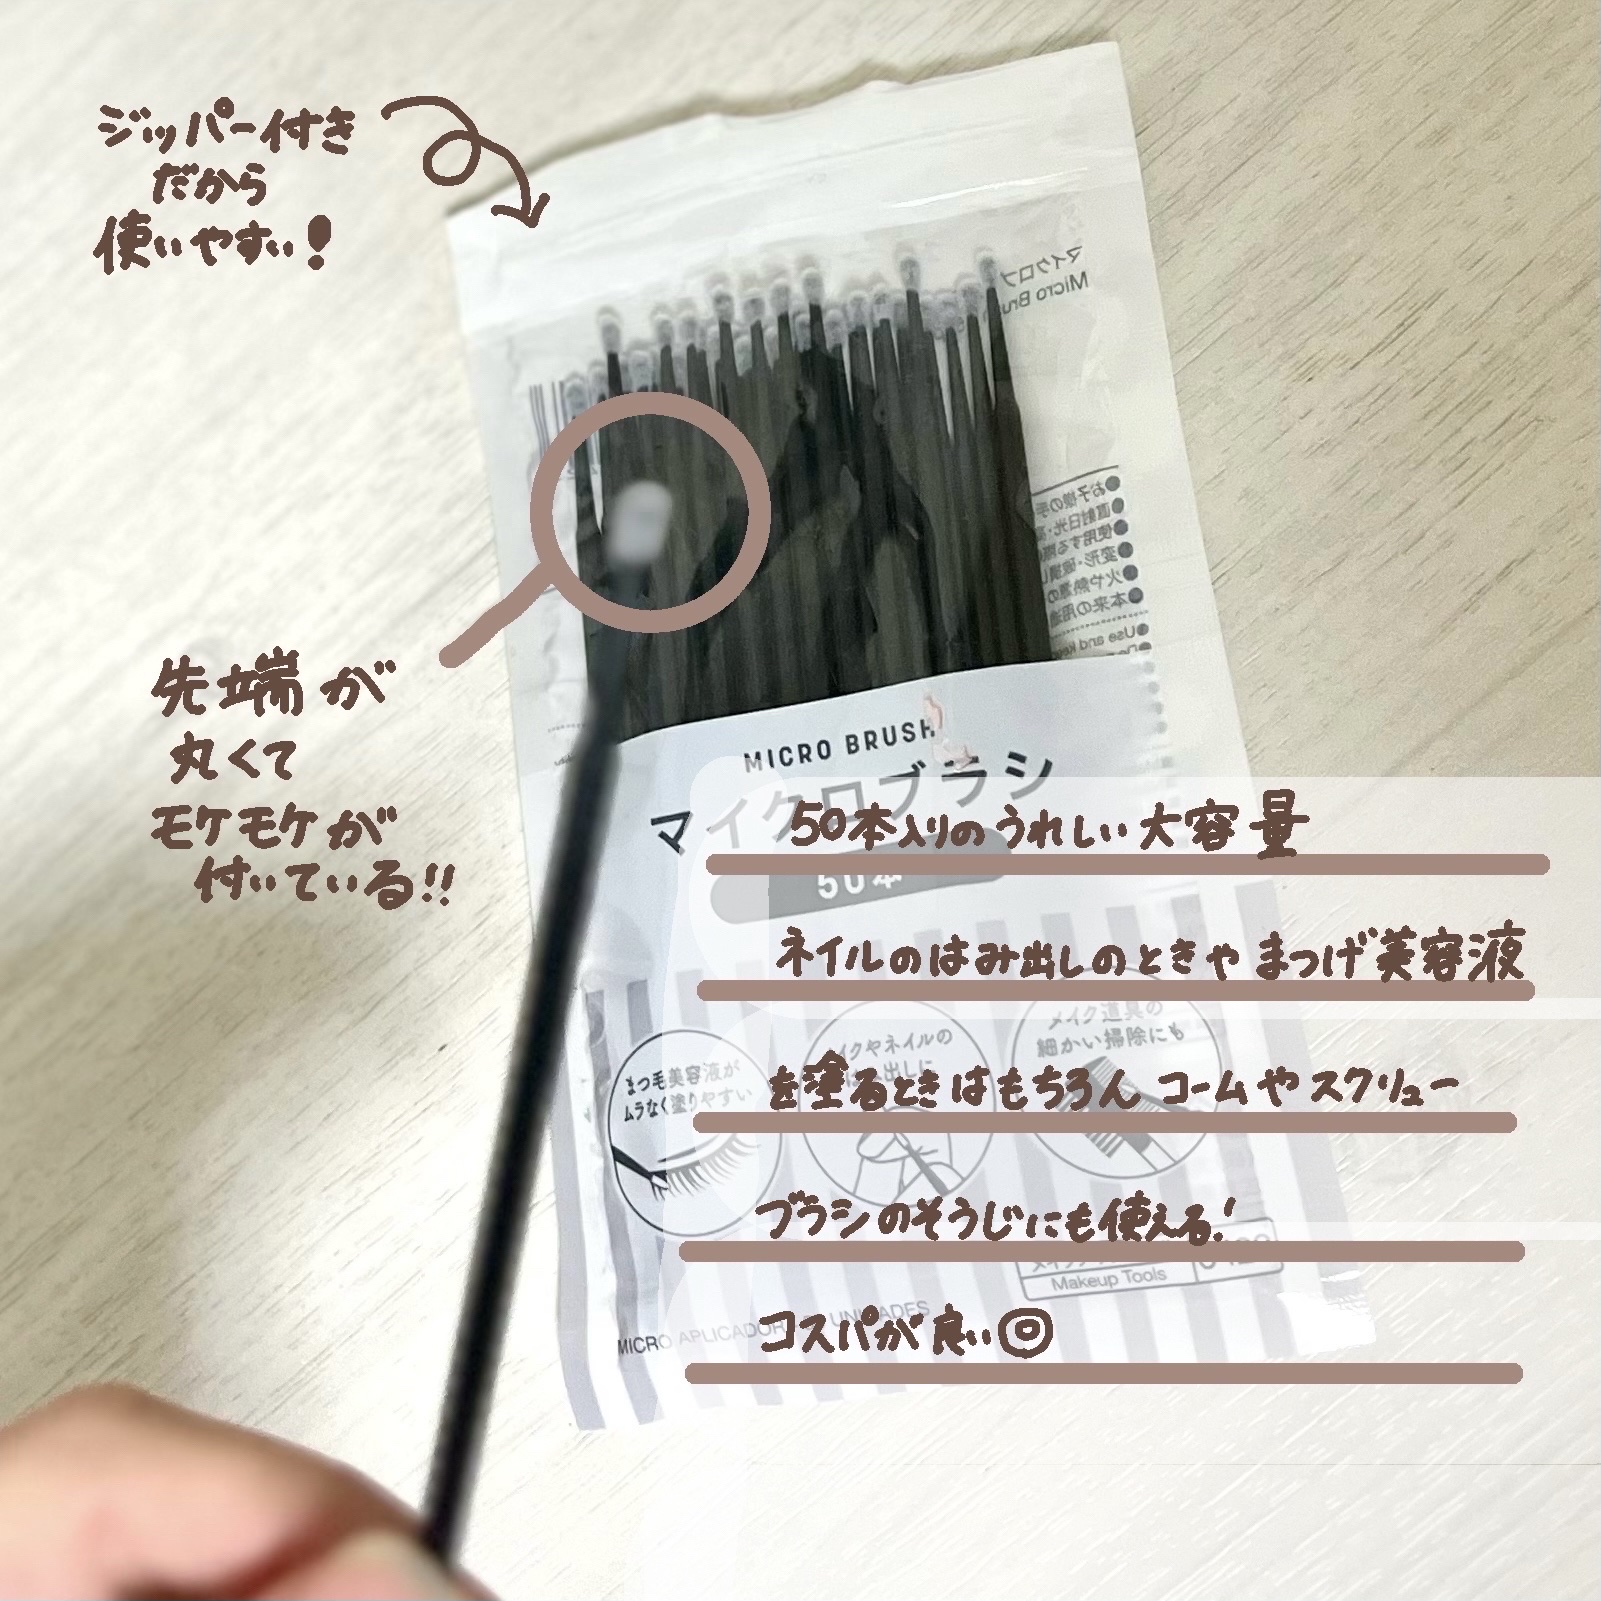 ジッパー付き
だから
使いやすい!
先端が
丸くて
モケモケが
付いている!!
マイクロブ
Micro Bru
●お子様の手
●直射日光・高
●使用する際
●変形・破損し
●火や熱源の
●本来の用途
●Use and keep
MICRO BRUSH
マイクロブラシ
50本
50本入りのうれしい大容量
ネイルのはみ出しのときや まつげ美容液
を塗るときはもちろん コームやスクリュー
ブラシのそうじにも使える!
コスパが良い◎
まつ毛美容液が
ムラなく塗りやすい
メイクやネイルの
はみ出しに
メイク道具の
細かい掃除にも
Makeup Tools
MICRO APLICADOR
UNIDADES